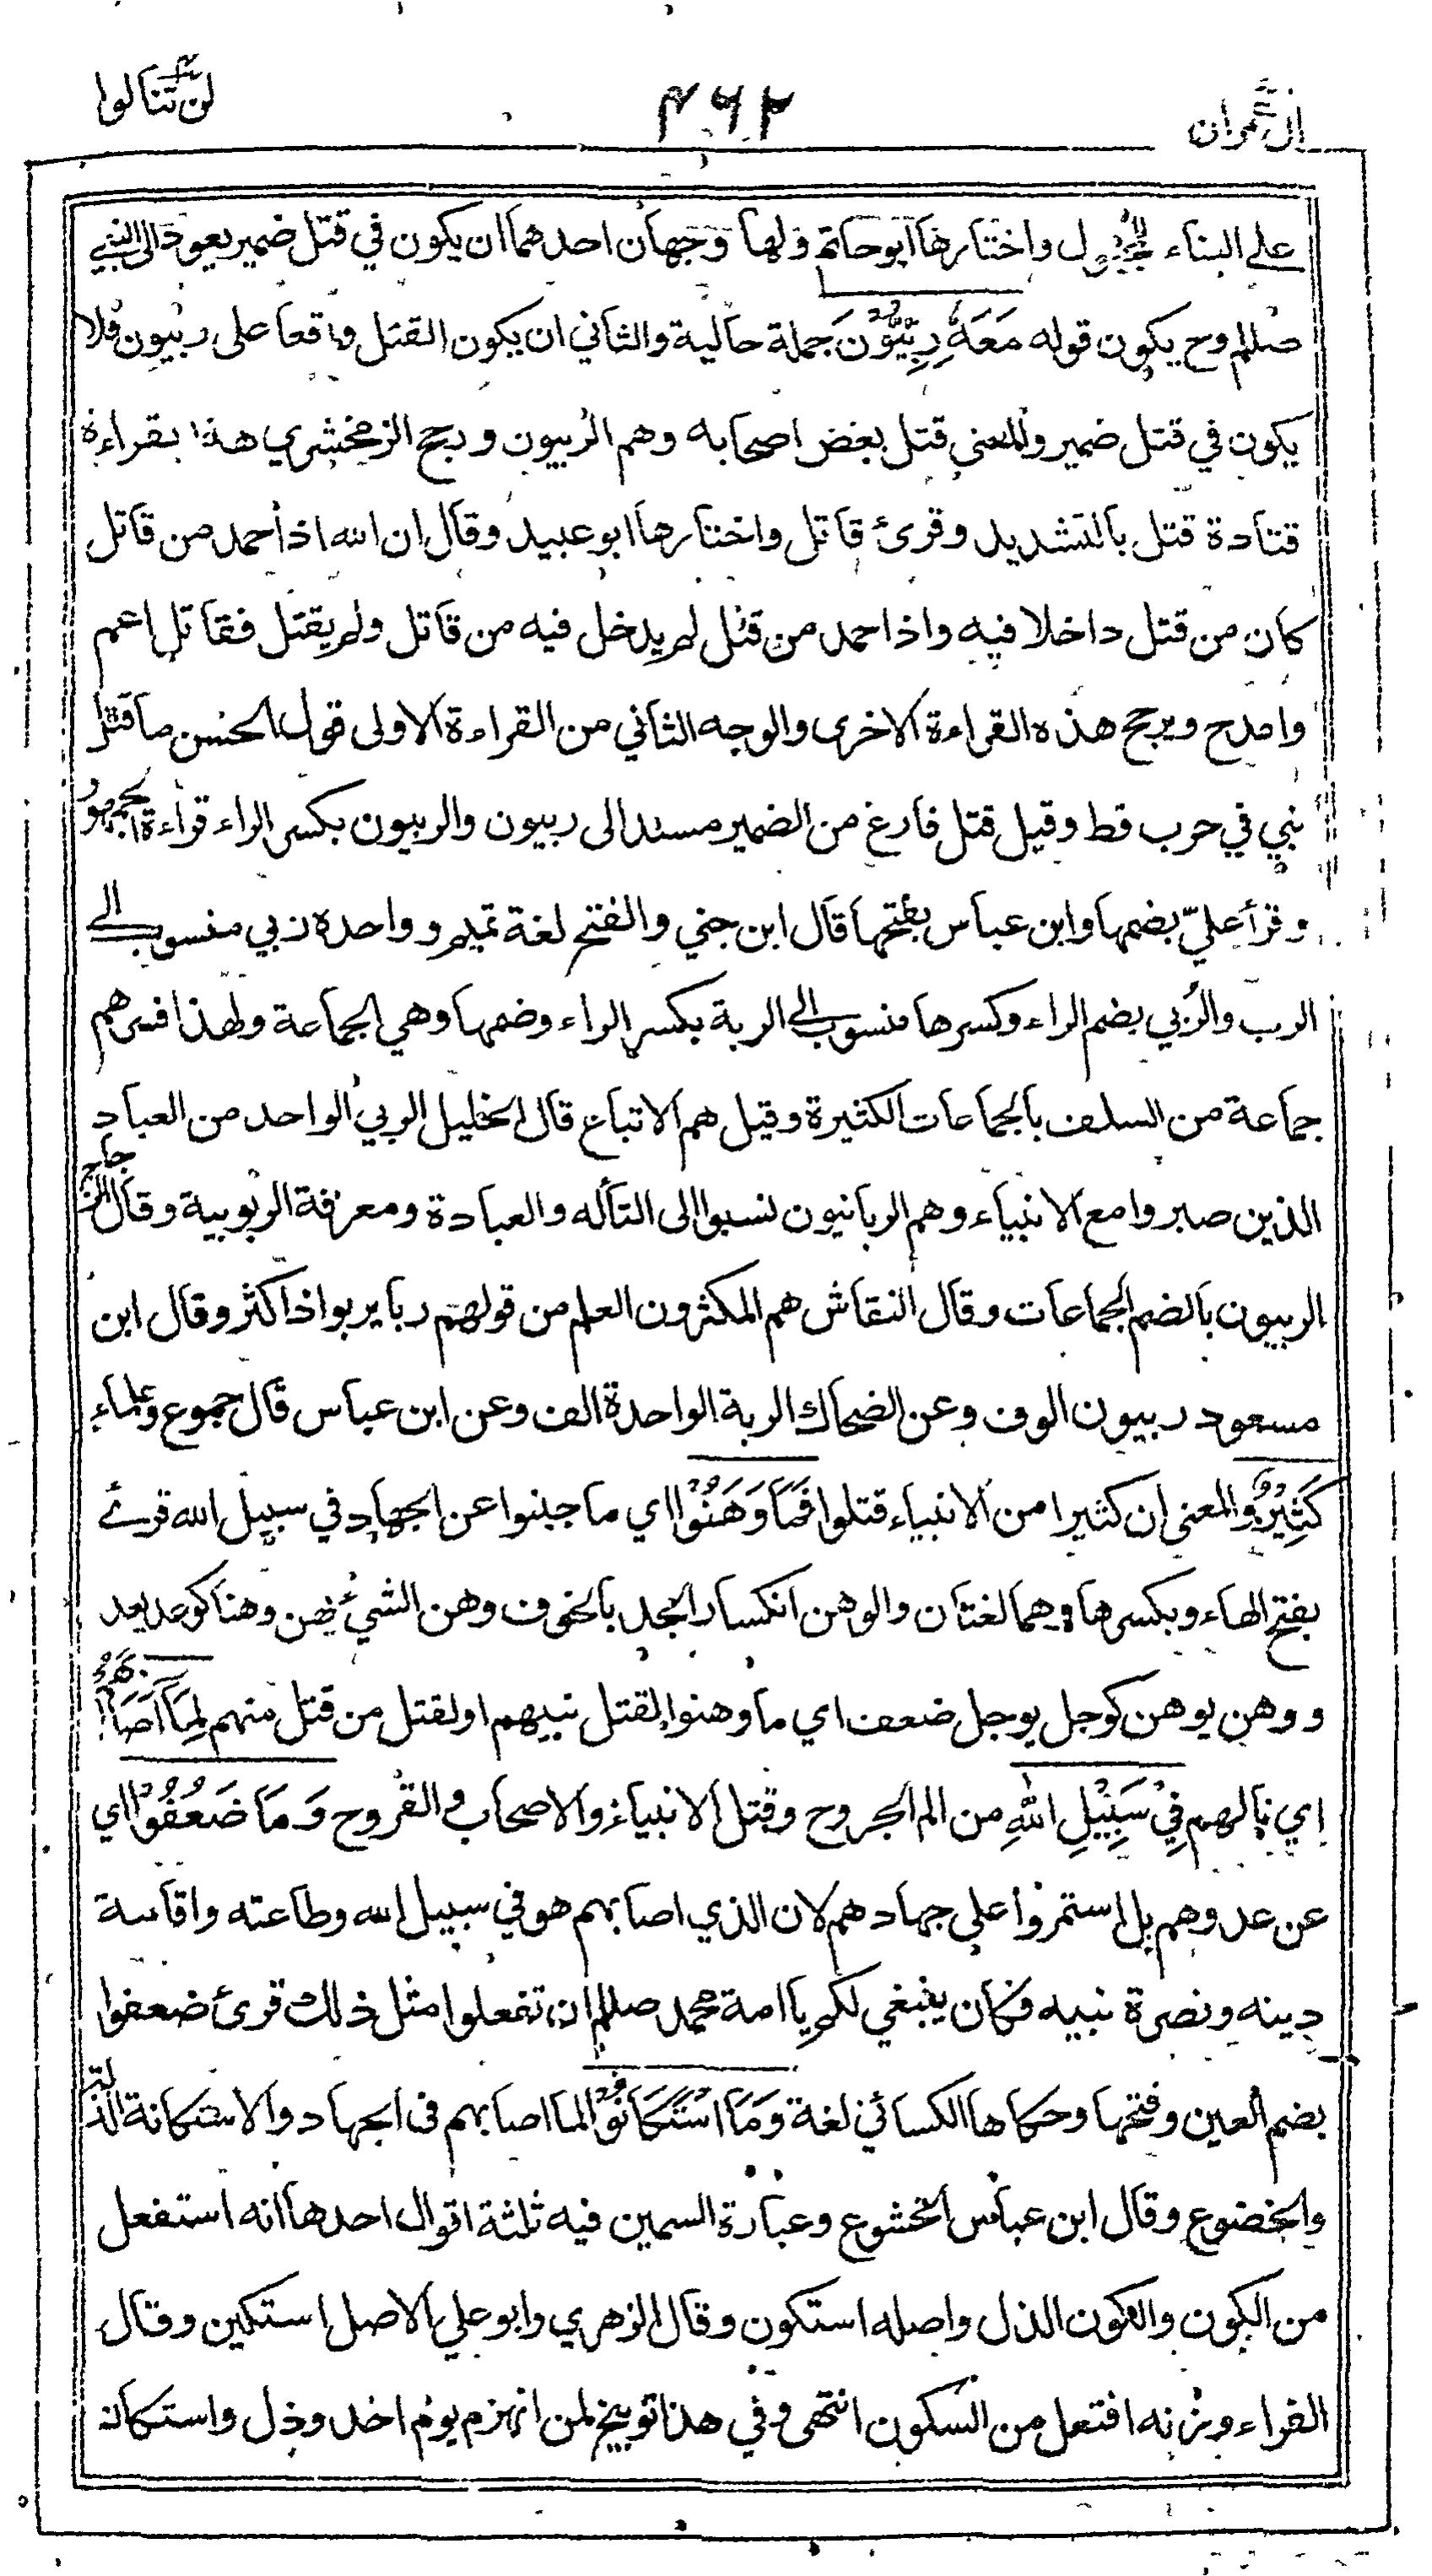 ال عمران ٤٦٢ لن تنالوا
على البناء للمجهول واختارها ابوحاتم ولها وجهان احدهما ان يكون في قتل ضمير يعود الى النبي
صللم وح يكون قوله مَعَهٗ رِبِّيُّوْنَ جملة حالية والثاني ان يكون القتل واقعا على ربيون فلا
يكون في قتل ضمير والمعنى قتل بعض اصحابه وهم الربيون ورجح الزمخشري هذا بقراءة
قتادة قتل بالتشديد وقرئ قاتل واختارها ابو عبيد وقال ان الله اذا حمد من قاتل
كان من قتل داخلا فيه واذا حمد من قتل لم يدخل فيه من قاتل ولم يقتل فقاتل اعم
وامدح ويرجح هذه القراءة الاخرى والوجه الثاني من القراءة الاولى قول الحسن ما قتل
نبي في حرب قط وقيل قتل فارغ من الضمير مسند الى ربيون والربيون بكسر الراء قراءة الجمهور
وقرأ عليّ بضمها وابن عباس بفتحها قال ابن جني والفتح لغة تميم وواحده ربي منسوب الى
الرب والرُبي بضم الراء وكسرها منسوب الى الربة بكسر الراء وضمها وهي الجماعة ولهذا فسرهم
جماعة من السلف بالجماعات الكثيرة وقيل هم الاتباع قال الخليل الربي الواحد من العباد
الذين صبروا مع الانبياء وهم الربانيون نسبوا الى التأله والعبادة ومعرفة الربوبية وقال الزجاج
الربيون بالضم الجماعات وقال النقاش هم المكثرون العلم من قولهم ربا يربو اذا كثر وقال ابن
مسعود ربيون الوف وعن الضحاك الربة الواحدة الف وعن ابن عباس قال جموع وعلماء
كَثِيْرٌ والمعنى ان كثيرا من الانبياء قتلوا فَمَا وَهَنُوْا اي ما جبنوا عن الجهاد في سبيل الله قرئ
بفتح الهاء وبكسرها وهما لغتان والوهن انكسار الجد بالخوف وهن الشيء يهن وهنا كوعد يعد
ووهن يوهن كوجل يوجل ضعف اي ما وهنوا لقتل نبيهم او لقتل من قتل منهم لِمَا اَصَابَهُمْ
اي نالهم فِيْ سَبِيْلِ اللّٰهِ من الم الجروح وقتل الانبياء والاصحاب والقروح وَمَا ضَعُفُوْا اي
عن عدوهم بل استمروا على جهادهم لان الذي اصابهم هو في سبيل الله وطاعته واقامة
دينه ونصرة نبيه فكان ينبغي لكم يا امة محمد صللم ان تفعلوا مثل ذلك قرئ ضعفوا
بضم العين وفتحها وحكاها الكسائي لغة وَمَا اسْتَكَانُوْا لما اصابهم في الجهاد والاستكانة الذلة
والخضوع وقال ابن عباس الخشوع وعبارة السمين فيه ثلثة اقوال احدها انه استفعل
من الكون والكون الذل واصله استكون وقال الزهري وابو علي الاصل استكين وقال
الفراء وزنه افتعل من السكون انتهى وفي هذا توبيخ لمن انهزم يوم احد وذل واستكان